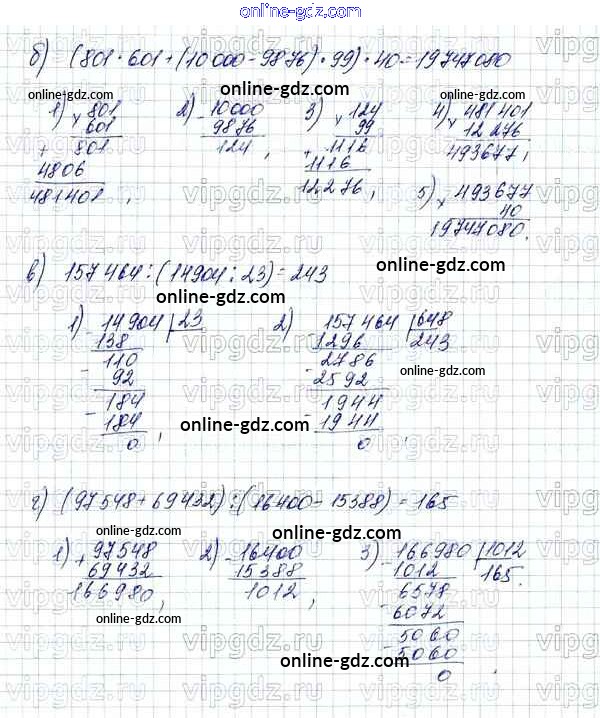 online-gdz.com
б) (801·601+(10000-9876)·99)·40=19747080
online-gdz.com online-gdz.com online-gdz.com
1) × 801 2) - 10000 3) × 124 4) × 481401
601 9876 99 12276
+ 801 124, + 1116 493677,
4806 1116
481401, 12276, 5) × 493677
40
19747080.
online-gdz.com
в) 157464:(14904:23)=243
online-gdz.com
1) - 14904 | 23 2) - 157464 | 648
138 1296 243
- 110 - 2786
92 2592
- 184 - 1944
184 1944
0, 0
online-gdz.com
г) (97548+69432):(16400-15388)=165
online-gdz.com online-gdz.com
1) + 97548 2) - 16400 3) - 166980 | 1012
69432 15388 1012 165.
166980, 1012, - 6578
6072
- 5060
5060
0
online-gdz.com
online-gdz.com
vipgdz.ru